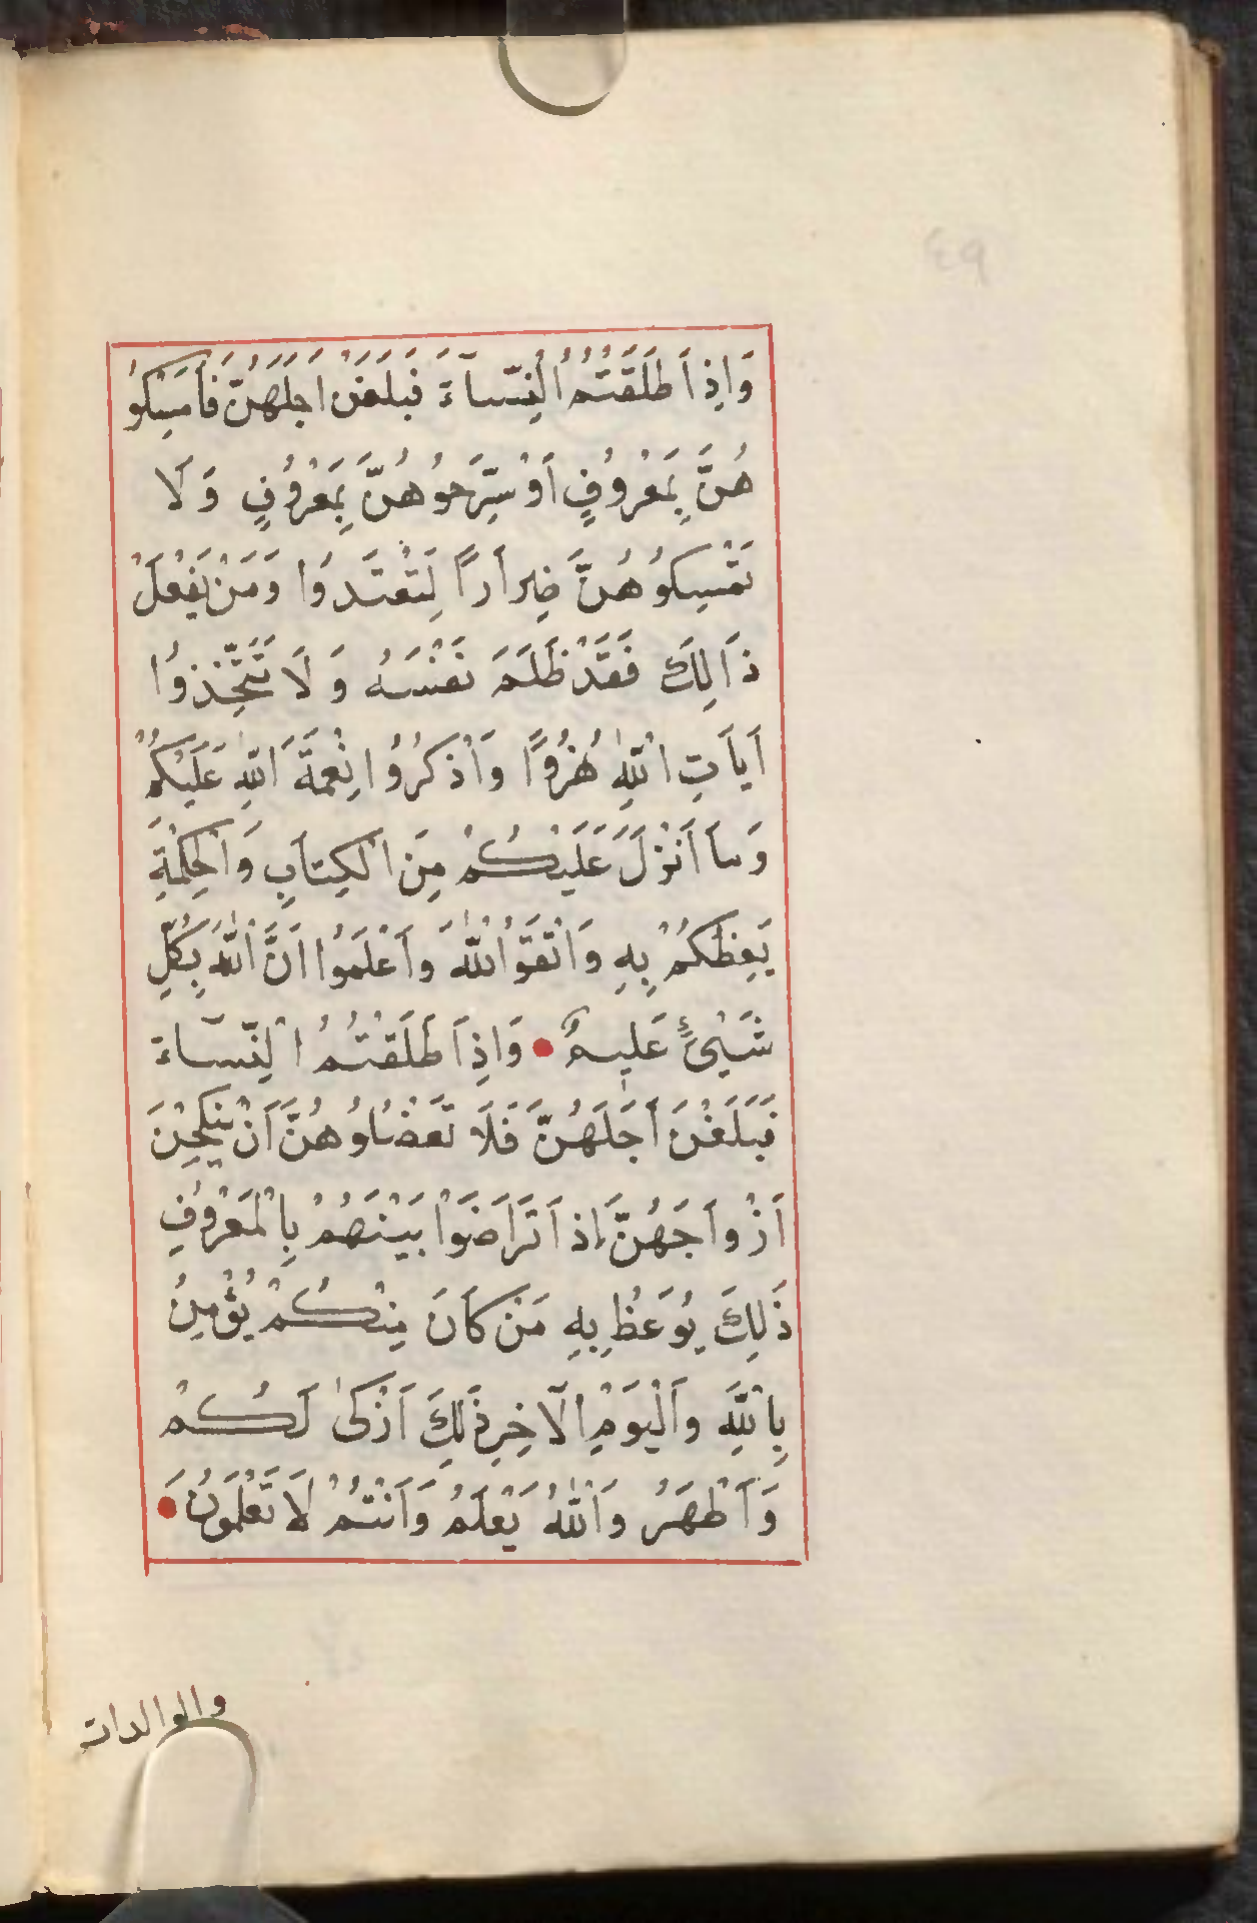 وَاِذَا طَلَّقْتُمُ الْنِّسآءَ فَبَلَغْنَ اَجَلَهُنَّ فَاَمْسِكُو
هُنَّ بِمَعْرُوُفٍ اَوْ سَرِّحوُهُنَّ بِمَعْرُوُفٍ وَلَا
تمْسِكوُهُنَّ ضِراَراً لِتَعْتَدوُا وَمَنْ يَفْعَلْ
ذاَلِكَ فَقَدْ ظَلَمَ نَفْسَهُ وَلَا تَتَّخِذوُا
اَياَتِ الْلّٰهِ هُزُوًا وَاَذْكُرُوُا نِعْمَةَ اَللّٰهِ عَلَيْكُمْ
وَماَ اَنْزَلَ عَلَيْكُمْ مِنَ الْكِتاَبِ وَاَلْحِكْمَةِ
يَعِظُكُمْ بِهِ وَاتَّقَوُا الْلّٰهَ وَاَعْلَمَوُا اَنَّ اَلْلّٰهَ بِكُلِّ
شَيْئٍ عَليمٌ وَاِذَا طَلَّقْتُمُ الْنِّسآءَ
فَبَلَغْنَ اَجَلَهُنَّ فَلَا تَعْضُلوُهُنَّ اَنْ يَنْكِحْنَ
اَزْواَجَهُنَّ إِذاَ تَراَضَوْا بَيْنَهُمْ بِالْمَعْرُوُفِ
ذَلِكَ يوُعَظُ بِهِ مَنْ كاَنَ مِنْكُمْ يُؤْمِنُ
بِالْلّٰهِ وَاَلْيَوْمِ الْآخِرِ ذَلِكَ اَزْكىٰ لَكُمْ
وَاَطْهَرُ وَاَلْلّٰهُ يَعْلَمُ وَاَنْتُمْ لَا تَعْلَمَوُنَ
والوالدات